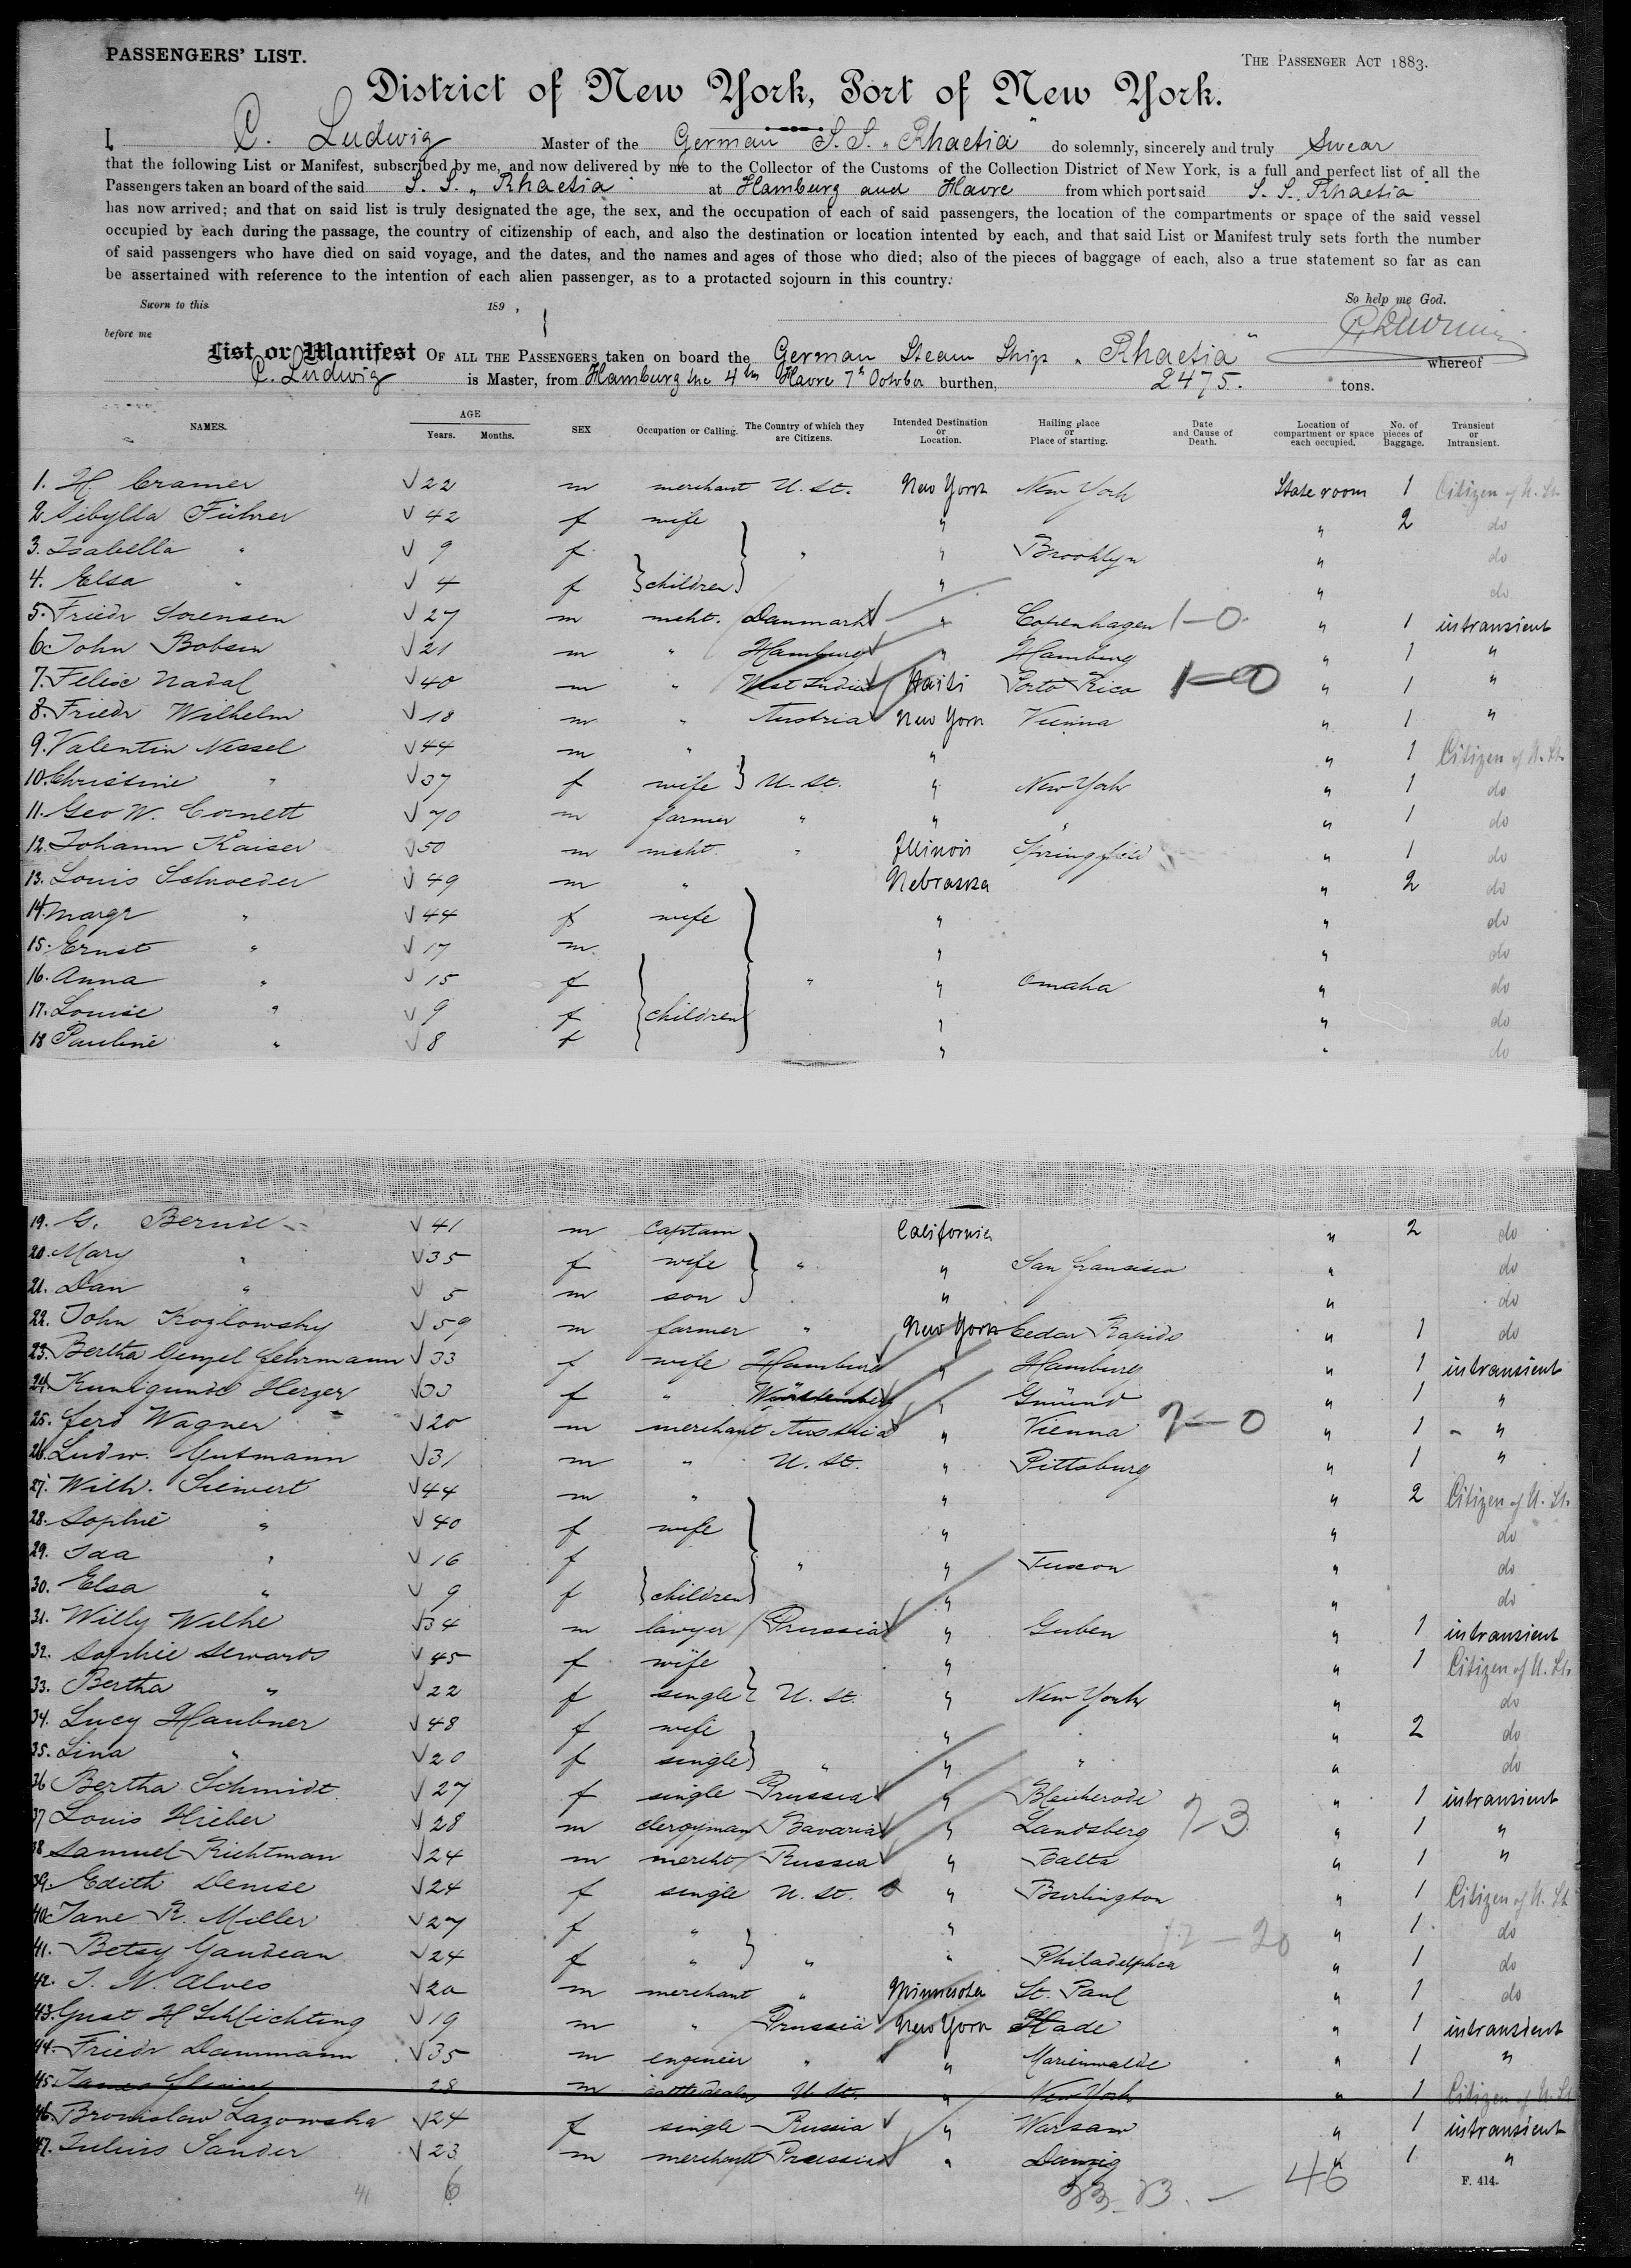 PASSENGERS' LIST.
THE PASSENGER ACT 1883.
District of New York, Port of New York.
I, C. Ludwig Master of the German S. S. „Rhaetia" do solemnly, sincerely and truly Swear
that the following List or Manifest, subscribed by me, and now delivered by me to the Collector of the Customs of the Collection District of New York, is a full and perfect list of all the
Passengers taken an board of the said S. S. „Rhaetia" at Hamburg and Havre from which port said S. S. Rhaetia
has now arrived; and that on said list is truly designated the age, the sex, and the occupation of each of said passengers, the location of the compartments or space of the said vessel
occupied by each during the passage, the country of citizenship of each, and also the destination or location intented by each, and that said List or Manifest truly sets forth the number
of said passengers who have died on said voyage, and the dates, and the names and ages of those who died; also of the pieces of baggage of each, also a true statement so far as can
be assertained with reference to the intention of each alien passenger, as to a protacted sojourn in this country.
Sworn to this 189 ,
So help me God.
before me
List or Manifest OF ALL THE PASSENGERS taken on board the German Steam Ship „Rhaetia" whereof
C. Ludwig is Master, from Hamburg the 4th Havre 7th October burthen, 2475. tons.
NAMES. AGE Years. Months. SEX Occupation or Calling. The Country of which they are Citizens. Intended Destination or Location. Hailing place or Place of starting. Date and Cause of Death. Location of compartment or space each occupied. No. of pieces of Baggage. Transient or Intransient.
1. H. Cramer 22 m merchant U. St. New York New York State room 1 Citizen of U. St.
2. Sibylla Führer 42 f wife " " 2 do
3. Isabella " 9 f " " Brooklyn " do
4. Elsa " 4 f children " " do
5. Friedr Sorensen 27 m mcht. Danmark " Copenhagen 1-0 " 1 intransient
6. John Bobsen 21 m " Hamburg " Hamburg " 1 "
7. Felix Nadal 40 m " West Indies Haiti Porto Rico 1-0 " 1 "
8. Friedr Wilhelm 18 m " Austria New York Vienna " 1 "
9. Valentin Nessel 44 m " " " 1 Citizen of U. St.
10. Christine " 37 f wife U. St. " New York " 1 do
11. Geo W. Cornett 70 m farmer " " " " 1 do
12. Johann Kaiser 50 m mcht. " Illinois Springfield " 1 do
13. Louis Schroeder 49 m " Nebraska " 2 do
14. Margr " 44 f wife " " do
15. Ernst " 17 m. " " do
16. Anna " 15 f " " Omaha " do
17. Louise " 9 f children " " do
18 Pauline " 8 f " " do
19. G. Bernie 41 m Captain California " 2 do
20. Mary " 35 f wife " " San Francisco " do
21. Dan " 5 m son " " do
22. John Kozlowsky 59 m farmer " New York Cedar Rapids " 1 do
23. Bertha Genzel Gehrmann 33 f wife Hamburg " Hamburg " 1 intransient
24. Kunigunde Herzer 33 f " Württemberg " Gmünd " 1 "
25. Ferd Wagner 20 m merchant Austria " Vienna 7-0 " 1 "
26. Ludw. Gutmann 31 m " U. St. " Pittsburg " 1 "
27. Wilh. Siewert 44 m " " " 2 Citizen of U. St.
28. Sophie " 40 f wife " " do
29. Ida " 16 f " " Tuxon " do
30. Elsa " 9 f children " " do
31. Willy Wilke 34 m lawyer Prussia " Guben " 1 intransient
32. Sophie Sewards 45 f wife " " 1 Citizen of U. St.
33. Bertha " 22 f single U. St. " New York " do
34. Lucy Haubner 48 f wife " " 2 do
35. Lina " 20 f single " " " " do
36 Bertha Schmidt 27 f single Prussia " Bleicherode " 1 intransient
37 Louis Hieber 28 m clergyman Bavaria " Landsberg 7-3 " 1 "
38 Samuel Richtman 24 m mercht Russia " Balta " 1 "
39. Edith Denise 24 f single U. St. " Burlington " 1 Citizen of U. St
40. Jane R. Miller 27 f " " 12-20 " 1 do
41. Betsy Gaudean 24 f " " " Philadelphia " 1 do
42. J. N. Alves 20 m merchant " Minnesota St. Paul " 1 do
43. Gust H Schlichting 19 m " Prussia New York Stade " 1 intransient
44. Friedr Dammann 35 m engineer " " Marienwalde " 1 "
45. James 28 m U. St. " New York " 1 Citizen of U. St
46. Bronislaw Lazowska 24 f single Russia " Warsaw " 1 intransient
47. Julius Sander 23 m merchant Prussia " Danzig " 1 "
41 6 46
F. 414.